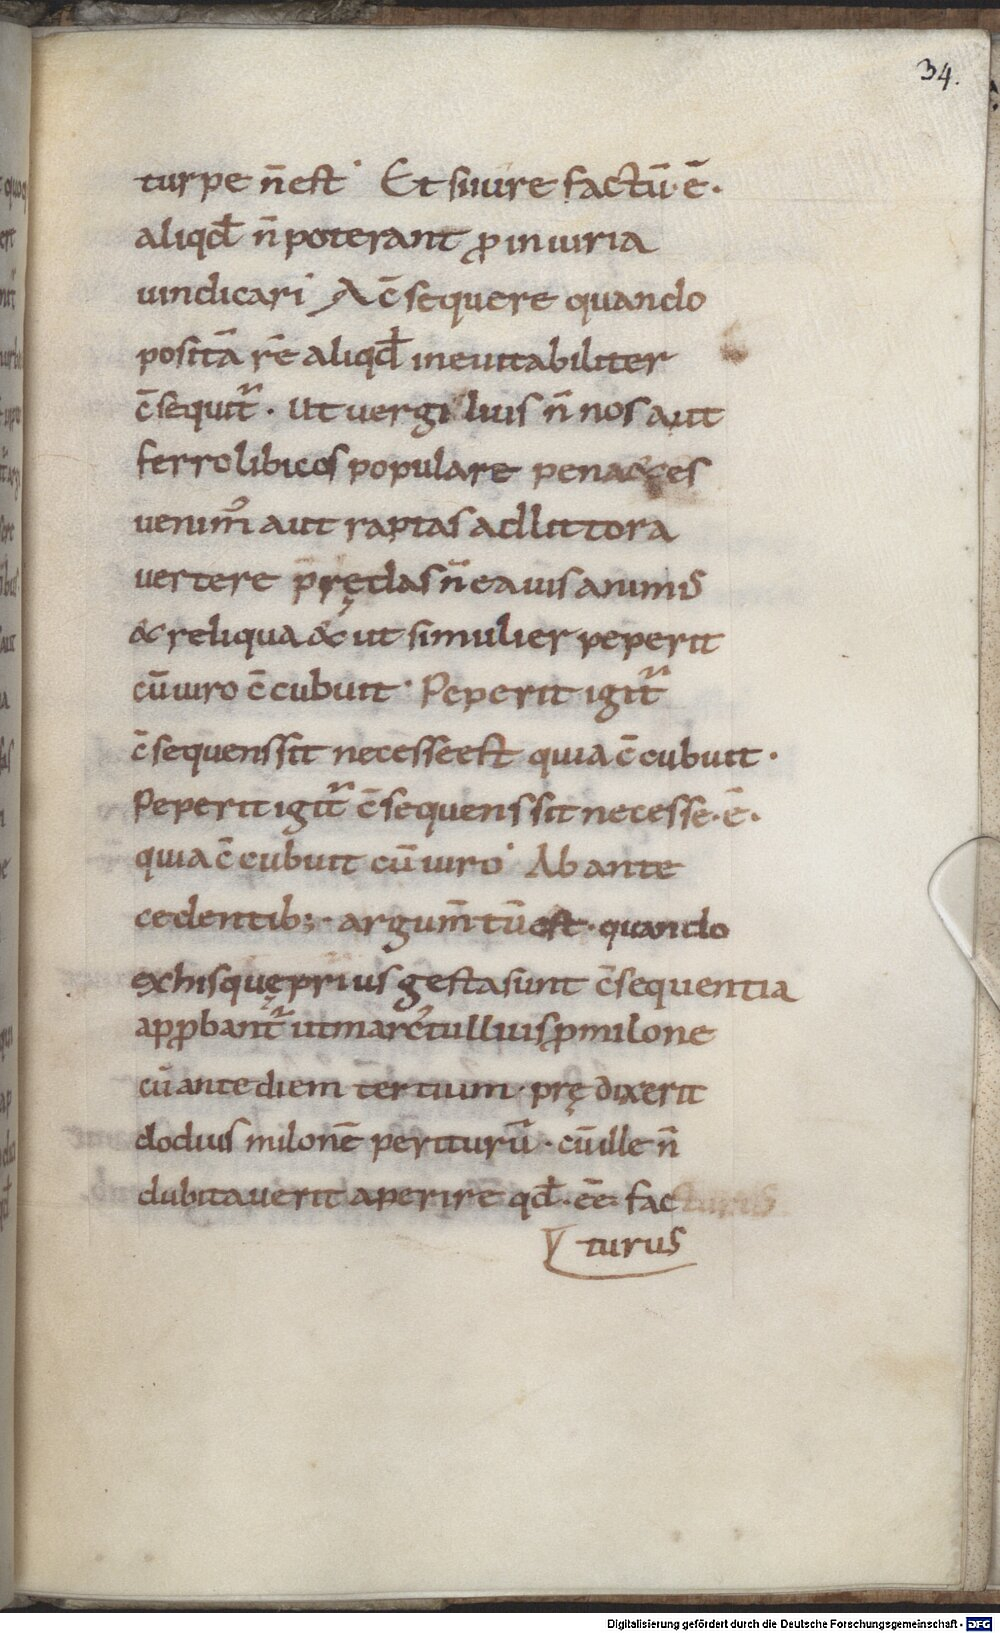 34.
turpe n̄ est· Et si iure factū·ē·
aliqd̄ n̄ poterant ꝓ iniuria
uindicari· A c̄sequere quando
positā rē aliqd̄ ineuitabiliter
c̄sequit᷑· Ut uergilius n̄ nos aut
ferro libicos populare penates
uenim᷒ aut raptas ad littora
uertere prędas n̄ ea uis animis
& reliqua & ut si mulier peperit
cū uiro c̄cubuit· Peperit igit᷑
c̄sequens sit necesse est quia c̄cubuit·
Peperit igit᷑ c̄sequens sit necesse·ē·
quia c̄cubuit cū uiro· Ab ante
cedentib;· argum̄tū est· quando
ex his quę prius gesta sunt c̄sequentia
apꝓbant᷑ ut marc᷒ tullius ꝓ milone
cū ante diem tertium· prę dixerit
clodius milonē periturū· cū ille n̄
dubitauerit aperire qd̄·eē· fac
turus
Digitalisierung gefördert durch die Deutsche Forschungsgemeinschaft - DFG